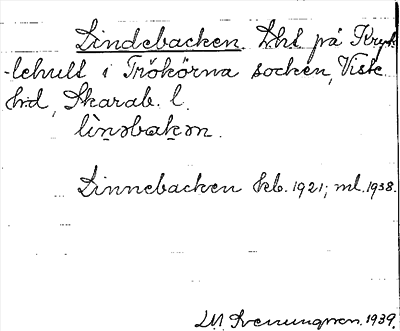 Lindebacken. Lht på Kryk-
-lehult i Trökörna socken, Viste
hd, Skarab. l.
lìnəbakən.
Linnebacken kb. 1921; ml. 1938.
LM Svenungsson. 1939.